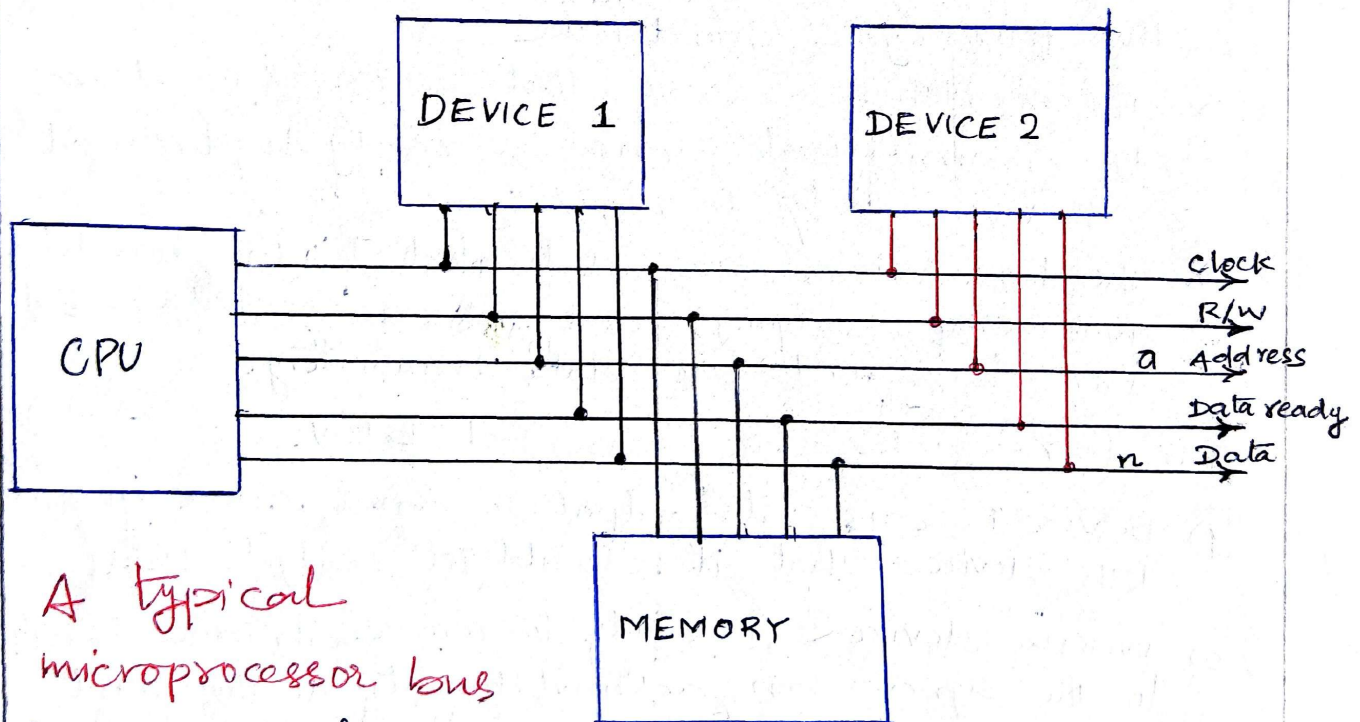 DEVICE 1
DEVICE 2
CPU
Clock
R/W
a Address
Data ready
n Data
MEMORY
A typical
microprocessor bus